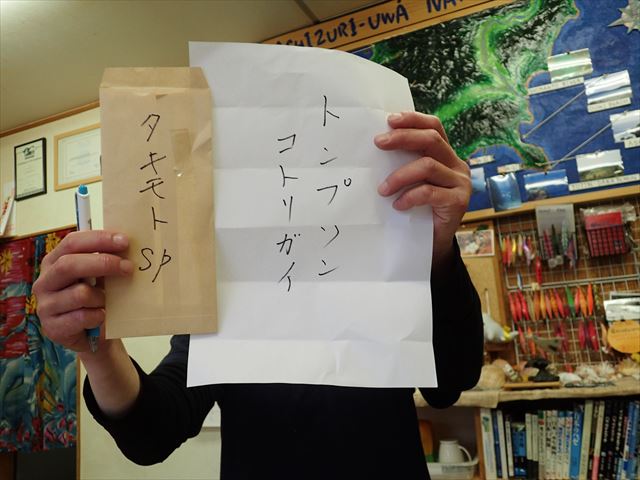 ASHIZURI-UWA NA
タキモトsp
トンプソン
コトリガイ